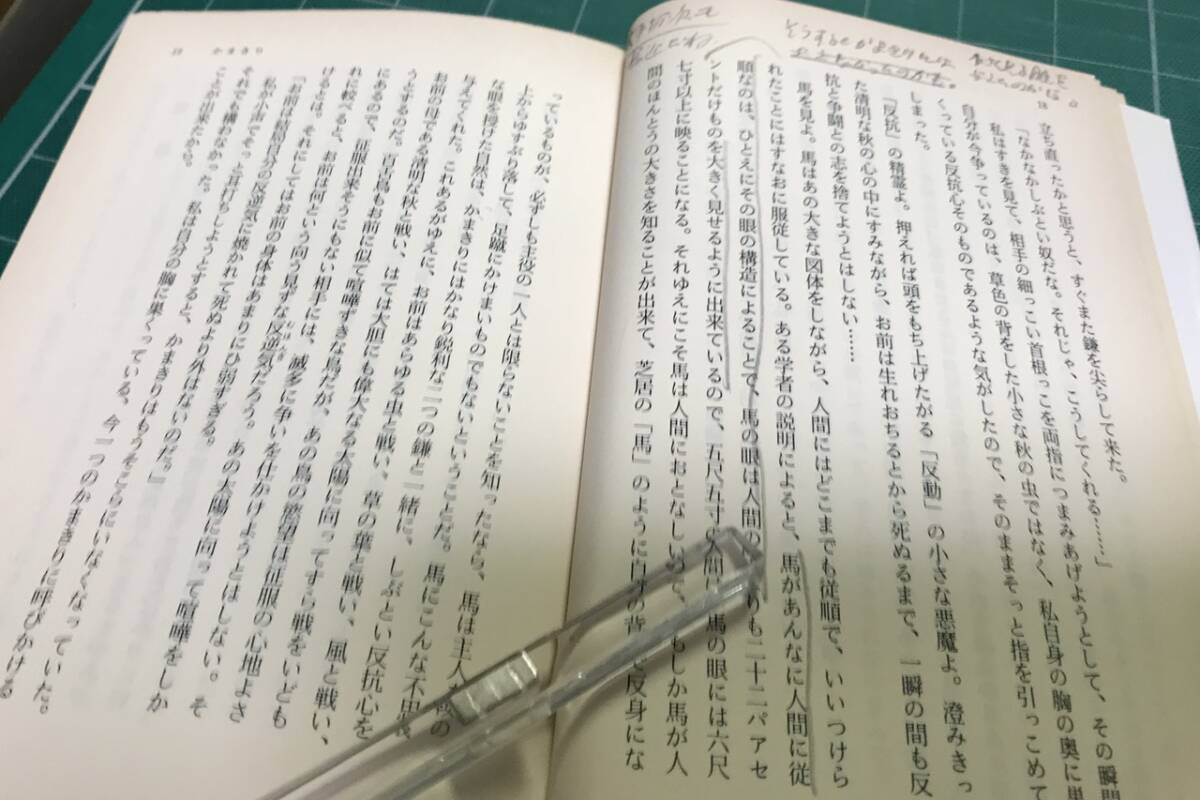 18
立ち直ったかと思うと、すぐまた鎌を尖らして来た。
「なかなかしぶとい奴だな。それじゃ、こうしてくれる……」
私はすきを見て、相手の細っこい首根っこを両指につまみあげようとして、その瞬間
自分が今争っているのは、草色の背をした小さな秋の虫ではなく、私自身の胸の奥に巣
くっている反抗心そのものであるような気がしたので、そのままそっと指を引っこめて
しまった。
「反抗」の精霊よ。押えれば頭をもち上げたがる「反動」の小さな悪魔よ。澄みきっ
た清明な秋の心の中にすみながら、お前は生れおちるとから死ぬるまで、一瞬の間も反
抗と争闘との志を捨てようとはしない……
馬を見よ。馬はあの大きな図体をしながら、人間にはどこまでも従順で、いいつけら
れたことにはすなおに服従している。ある学者の説明によると、馬があんなに人間に従
順なのは、ひとえにその眼の構造によることで、馬の眼は人間の りも二十二パアセ
ントだけものを大きく見せるように出来ているので、五尺五寸 人間は馬の眼には六尺
七寸以上に映ることになる。それゆえにこそ馬は人間におとなしい で、 もしか馬が人
間のほんとうの大きさを知ることが出来て、芝居の「馬」のように自身の背 で反身にな
19 かまきり
っているものが、必ずしも主役の一人とは限らないことを知ったなら、馬は主人を
上からゆすぶり落して、足蹴にかけまいものでもないということだ。馬にこんな不思議
な眼を授けた自然は、かまきりにはかなり鋭利な二つの鎌と一緒に、しぶとい反抗心を
与えてくれた。これあるがゆえに、お前はあらゆる虫と戦い、草の葉と戦い、風と戦い、
お前の母である清明な秋と戦い、はては大胆にも偉大なる太陽に向ってすら戦をいども
うとするのだ。古古鳥もお前に似て喧嘩ずきな鳥だが、あの鳥の慾望は征服の心地よさ
にあるので、征服出来そうにもない相手には、滅多に争いを仕かけようとはしない。そ
れに較べると、お前は何という向う見ずな反逆気だろう。あの太陽に向って喧嘩をしか
けるとは。それにしてはお前の身体はあまりにひ弱すぎる。
「お前は結局自分の反逆気に焼かれて死ぬより外はないのだ。」
私が小声でそっと耳打ちしようとすると、かまきりはもうそこらにいなくなっていた。
それでも構わなかった。私は自分の胸に巣くっている、今一つのかまきりに呼びかける
ことが出来たから。